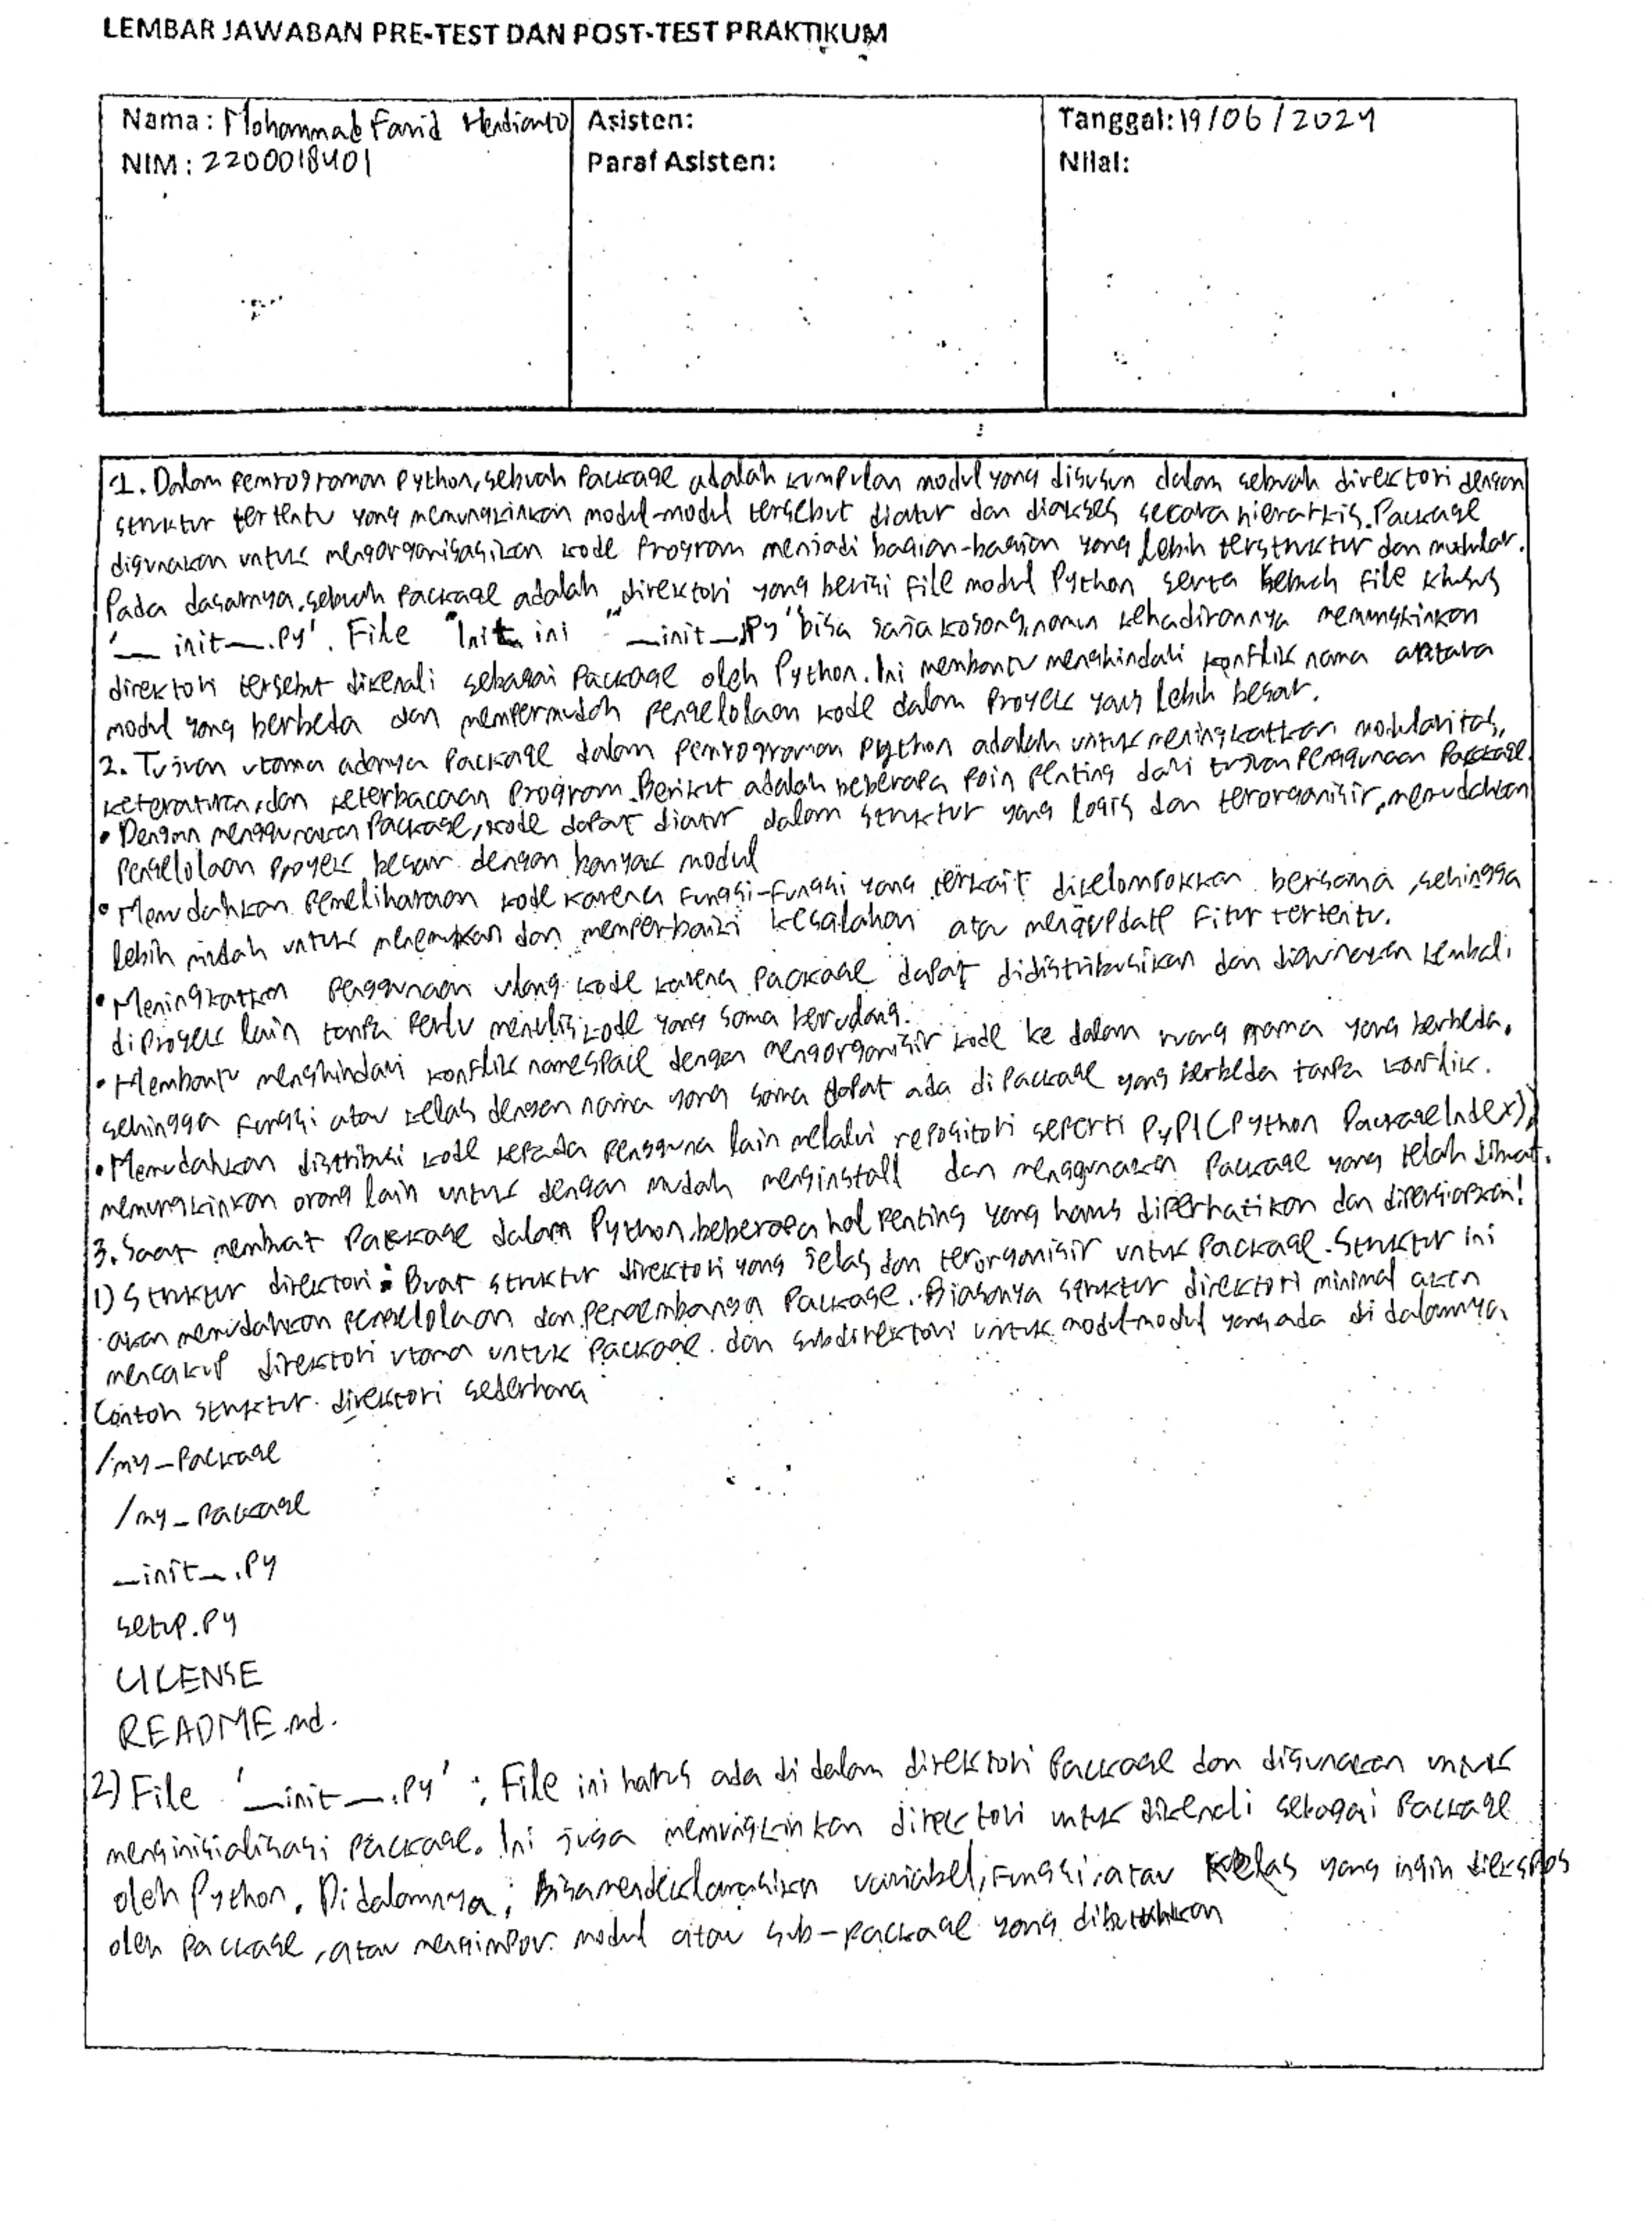 LEMBAR JAWABAN PRE-TEST DAN POST-TEST PRAKTIKUM
Nama: Mohammad Farid Herdianto
NIM: 2200018401
Asisten:
Paraf Asisten:
Tanggal: 19/06/2024
Nilai:
1. Dalam pemrograman Python, sebuah Package adalah kumpulan modul yang disusun dalam sebuah direktori dengan
struktur tertentu yang memungkinkan modul-modul tersebut diatur dan diakses secara hierarkis. Package
digunakan untuk mengorganisasikan kode Program menjadi bagian-bagian yang lebih terstruktur dan modular.
Pada dasarnya, sebuah Package adalah direktori yang berisi file modul Python serta sebuah file khusus
'__init__.py'. File Init ini "__init__.py" bisa saja kosong, namun kehadirannya memungkinkan
direktori tersebut dikenali sebagai Package oleh Python. Ini membantu menghindari konflik nama antara
modul yang berbeda dan mempermudah pengelolaan kode dalam Proyek yang lebih besar.
2. Tujuan utama adanya Package dalam Pemrograman Python adalah untuk meningkatkan modularitas,
keteraturan, dan keterbacaan Program. Berikut adalah beberapa Poin Penting dari tujuan Penggunaan Package
• Dengan menggunakan Package, kode dapat diatur dalam struktur yang logis dan terorganisir, memudahkan
Pengelolaan Proyek besar dengan banyak modul
• Memudahkan Pemeliharaan kode karena fungsi-fungsi yang terkait dikelompokkan bersama, sehingga
lebih mudah untuk menemukan dan memperbaiki kesalahan atau mengupdate fitur tertentu.
• Meningkatkan Penggunaan ulang kode karena Package dapat didistribusikan dan digunakan kembali
di Proyek lain tanpa Perlu menulis kode yang sama berulang.
• Membantu menghindari konflik namespace dengan mengorganisir kode ke dalam ruang nama yang berbeda,
sehingga fungsi atau kelas dengan nama yang sama dapat ada di Package yang berbeda tanpa konflik.
• Memudahkan distribusi kode kepada Pengguna lain melalui repositori seperti PyPI (Python Package Index),
memungkinkan orang lain untuk dengan mudah menginstall dan menggunakan Package yang telah dibuat.
3. Saat membuat Package dalam Python, beberapa hal Penting yang harus diperhatikan dan dipersiapkan!
1) Struktur direktori: Buat struktur direktori yang jelas dan terorganisir untuk Package. Struktur ini
akan memudahkan Pengelolaan dan Pengembangan Package. Biasanya struktur direktori minimal akan
mencakup direktori utama untuk Package dan subdirektori untuk modul-modul yang ada di dalamnya
Contoh struktur direktori sederhana
/my_Package
/my_Package
__init__.py
setup.py
LICENSE
README.md.
2) File '__init__.py' : File ini harus ada di dalam direktori Package dan digunakan untuk
menginisialisasi Package. Ini juga memungkinkan direktori untuk dikenali sebagai Package
oleh Python. Didalamnya, Bisa mendeklarasikan variabel, fungsi, atau Kelas yang ingin diekspos
oleh Package, atau mengimpor modul atau sub-package yang dibutuhkan